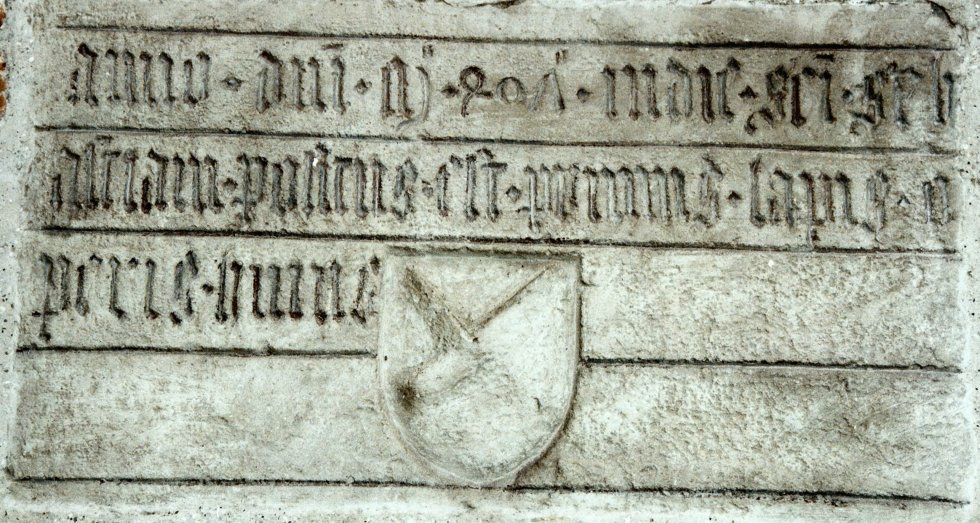 anno · dni · m · 407 · indie · sci · seb
astiani · positus · est · primus · lapis · o
peris · huius